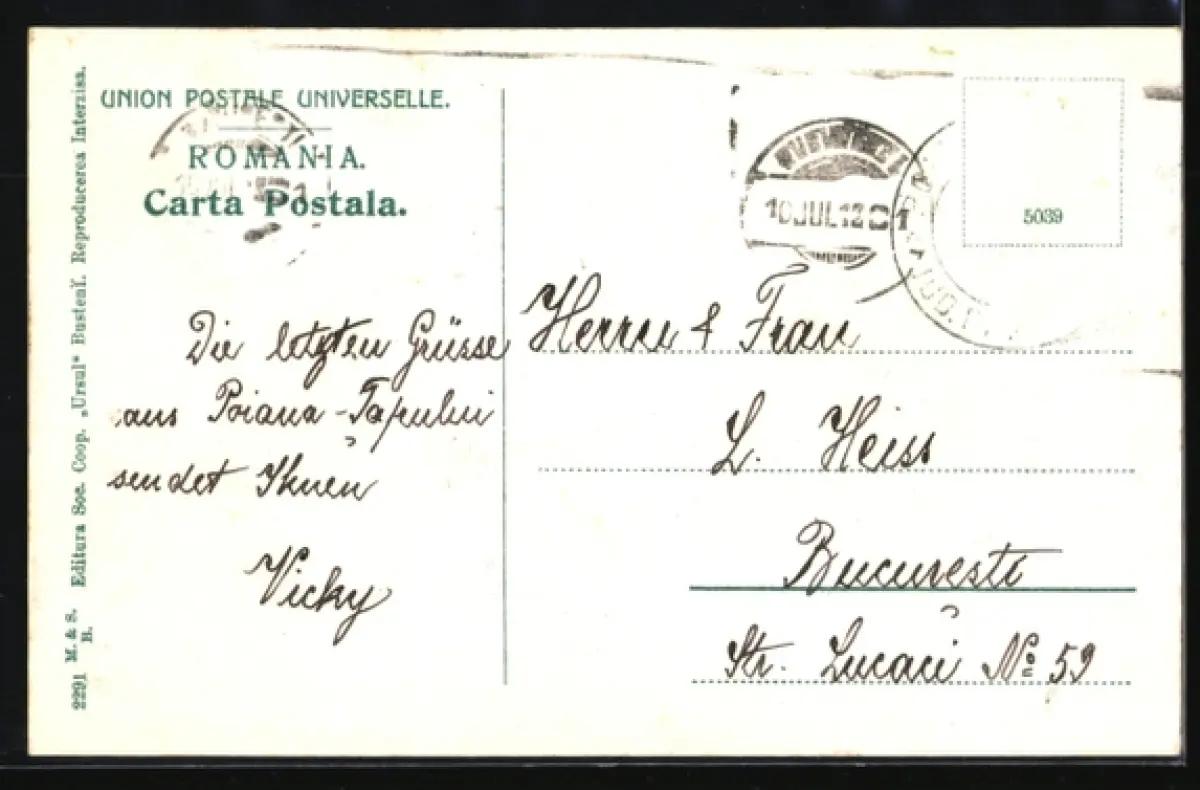 UNION POSTALE UNIVERSELLE.
ROMANIA.
Carta Postala.
Die letzten Grüsse
aus Poiana-Țapului
sendet Ihnen
Vicky
10 JUL 12
JUD.
5039
Herrn & Frau
L. Heiss
București
Str. Lucaci No 59
2291 M. & S. B. Editura Soc. Coop. „Ursul" Bustenĭ. Reproducerea Interzisa.